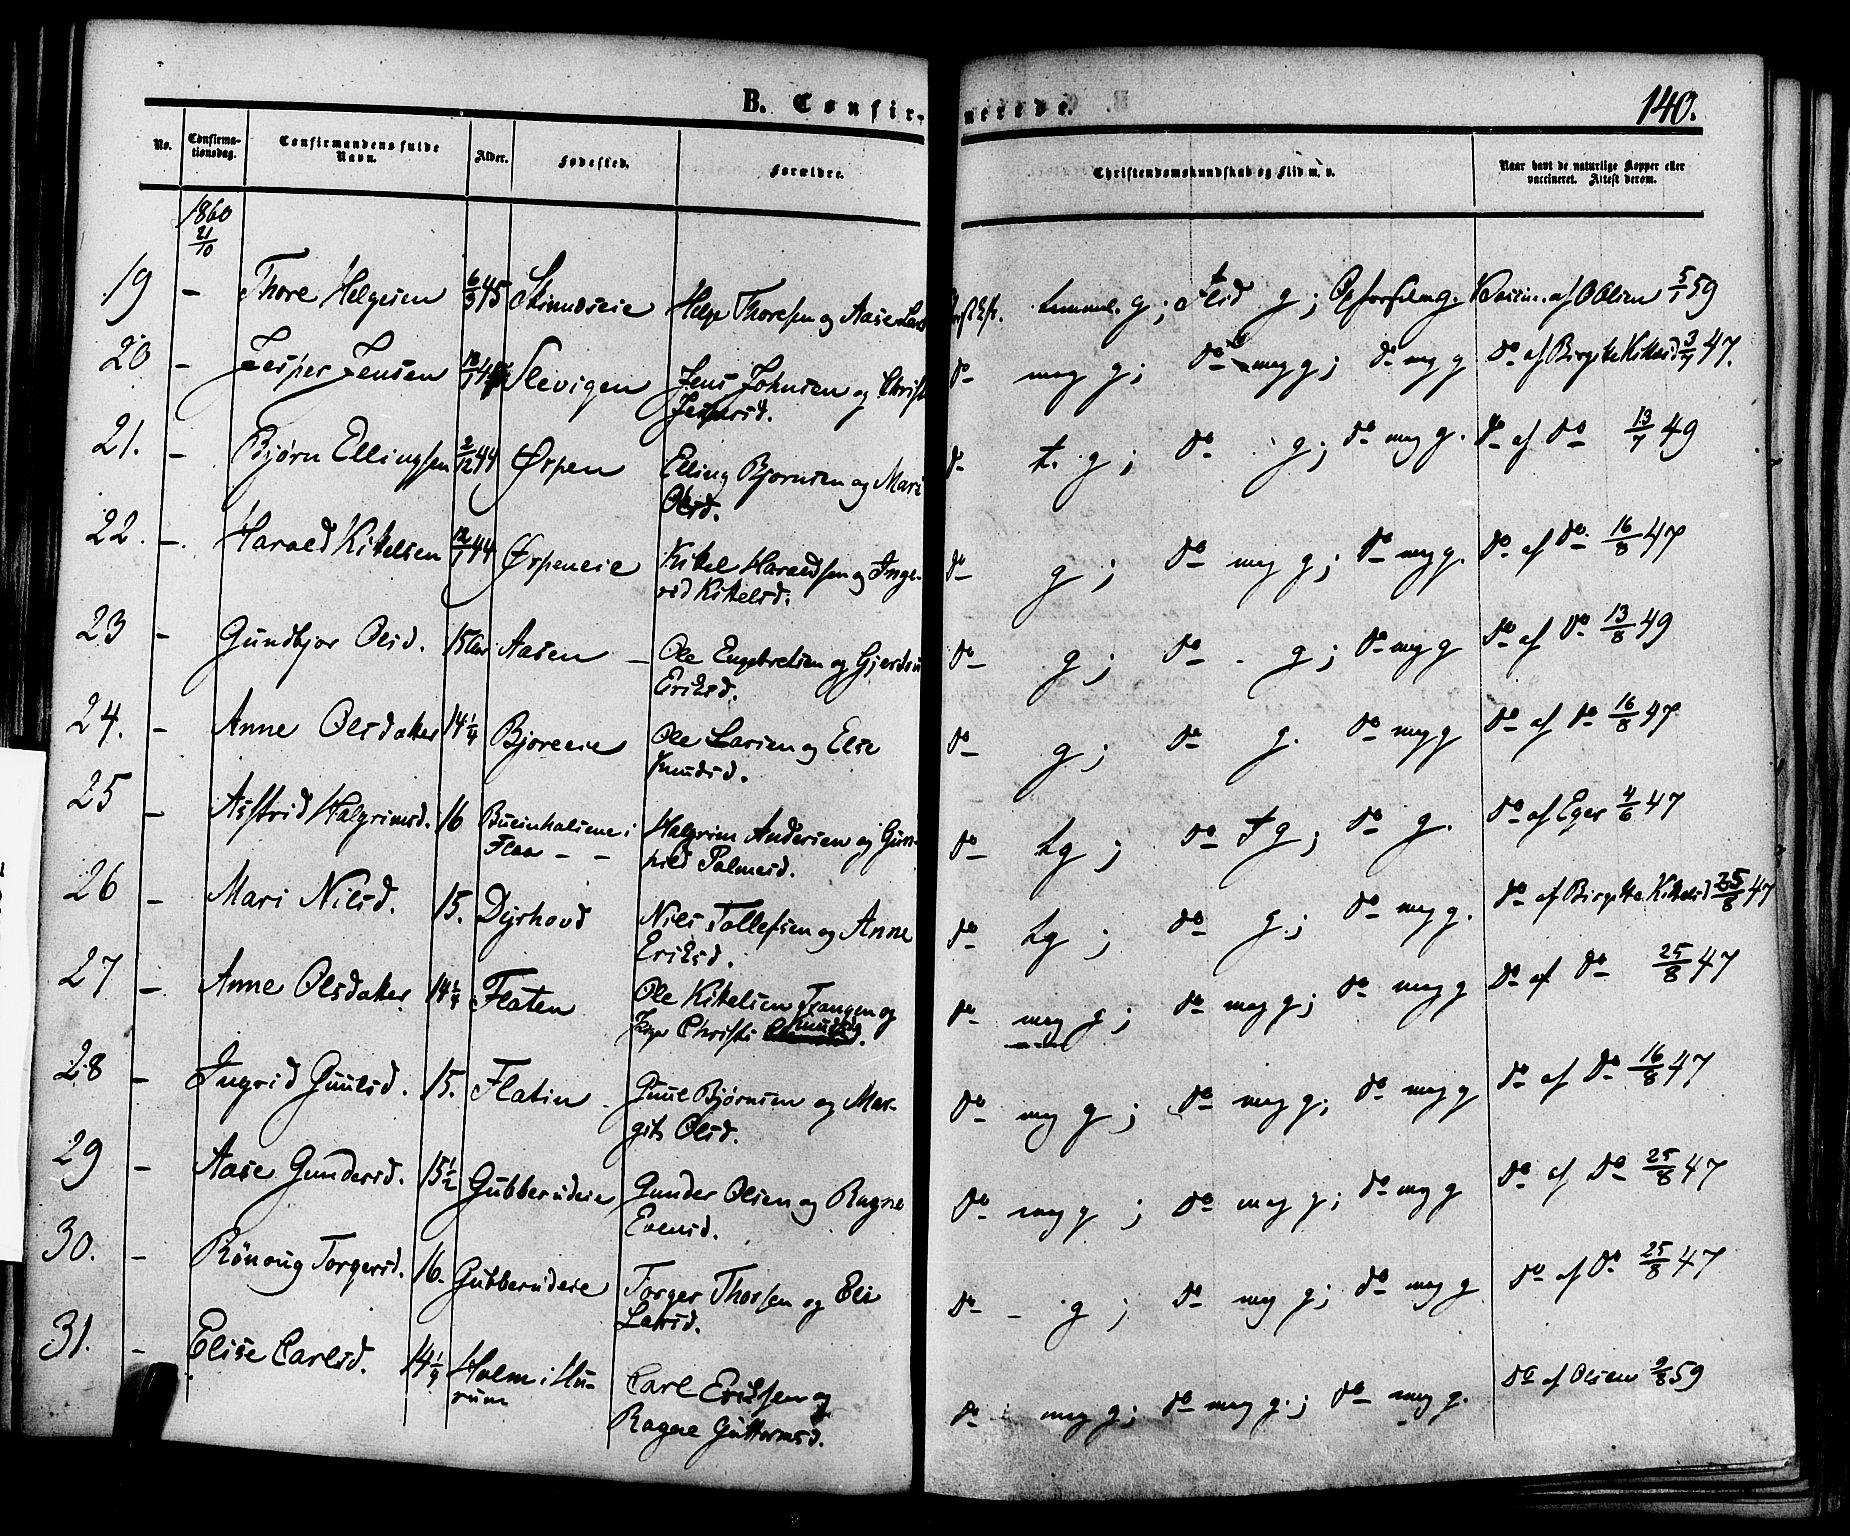 B. Confirmerede.
140.
No. Confirmationsdag. Confirmandens fulde Navn. Alder. Fødested. Forældre. Christendomskundskab og Flid m. v. Naar havt de naturlige Kopper eller vaccineret. Attest derom.
1860
21/10
19 - Thore Helgesen 6/3 45 Strandseie Helge Thoresen og Aase Lars t. Flid g; Opførsel m g. Vaccin. af O Olsen 5/1 59
20 - Jesper Jensen Slevigen Jens Johnsen og Christ meg g; do meg g; do meg g do af Birgitte Kittelsd 3/9 47.
Jespersd.
21. - Bjørn Ellingsen 2/12 44 Ørpen Elling Bjørnsen og Mari do t. g; do g; do meg g. do af do 13/7 49
Olsd.
22. - Harald Kittelsen 12/1 44 Ørpeneie Kittel Haraldsen og Inge- do g; do meg g; do meg g. do af do 16/8 47
rid Kittelsd.
23 - Gundbjor Olsd. 15 Aar Aasen - Ole Engebretsen og Gjertru do g; do g; do meg g do af do 13/8 49
Eriksd.
24. - Anne Olsdatter 14 1/4 Bjoreeie Ole Larsen og Else do g; do g. do meg g do af do 16/8 47
Knudsd.
25 - Astrid Halgrimsd. 16 Bueinhalsene i Halgrim Andersen og Gun- do tg; do t g; do g. do af Eger 4/6 47
Flaa - - hild Palmesd.
26 - Mari Nilsd. 15. Dyrhovd Nils Tollefsen og Anne do tg; do g; do meg g. do af Birgitte Kittelsd 25/8 47
Eriksd.
27 - Anne Olsdatter 14 1/4 Flaten Ole Kittelsen Trangen og do meg g; do meg g; do meg g do af do 25/8 47
Christi Knudsd.
28 - Ingrid Guulsd. 15. Flatin - Guul Bjørnsen og Mar- do meg g; do meg g; do meg g do af do 16/8 47
git Olsd.
29 - Aase Gundersd. 15 1/2 Gubberudeie Gunder Olsen og Ragne do meg g; do meg g; do meg g do af do 25/8 47
Evensd.
30. - Rönoug Torgersd. 16. Gubberudeie Torger Thorsen og Eli do - g; do meg g; do meg g do af do 25/8 47
Larsd.
31. - Elise Carlsd. 14 1/4 Holm i Hu- Carl Eriksen og do meg g; do meg g.; do meg g. do af Olsen 2/8 59
rum Ragne Guttormsd.